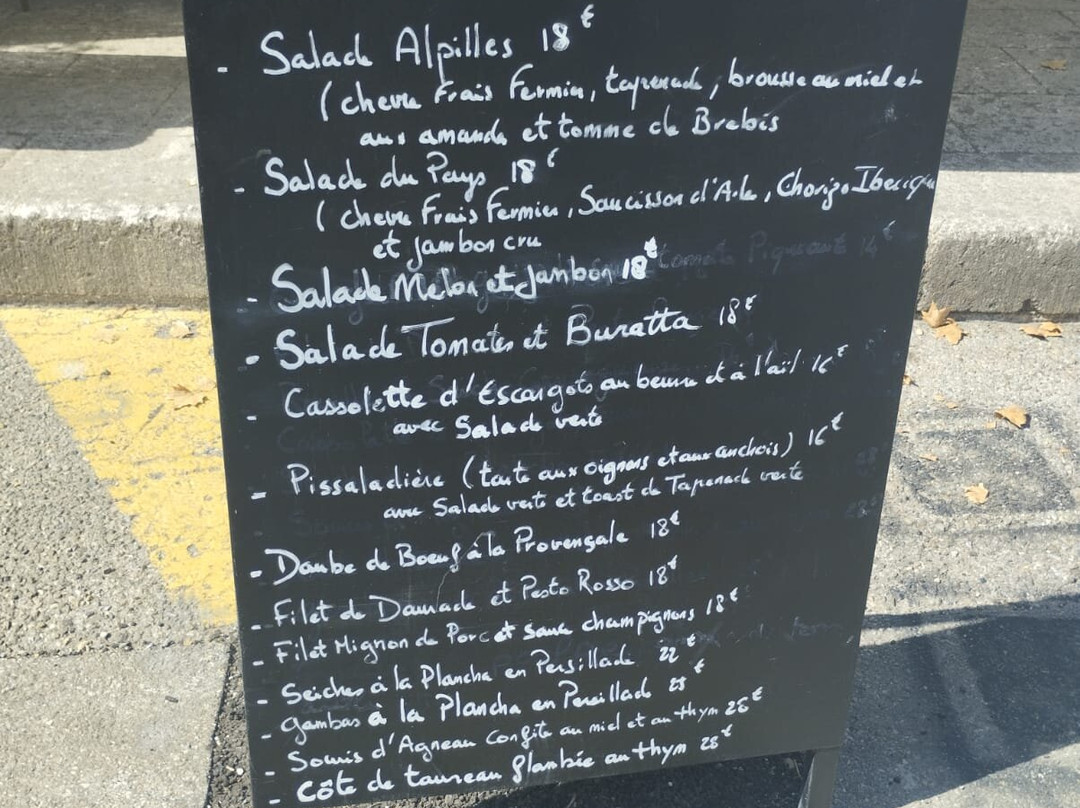 - Salade Alpilles 18€
(chèvre Frais Fermier, tapenade, brousse au miel et
aux amandes et tomme de Brebis
- Salade du Pays 18€
(chèvre Frais Fermier, Saucisson d'Arles, Chorizo Iberique
et jambon cru
- Salade Melon et Jambon 18€
- Salade Tomates et Buratta 18€
- Cassolette d'Escargots au beurre et à l'ail 16€
avec Salade verte
- Pissaladière (tarte aux oignons et aux anchois) 16€
avec Salade verte et toast de Tapenade verte
- Daube de Boeuf à la Provençale 18€
- Filet de Daurade et Pesto Rosso 18€
- Filet Mignon de Porc et sauce champignons 18€
- Seiches à la Plancha en Persillade 22€
- Gambas à la Plancha en Persillade €
- Souris d'Agneau Confite au miel et au thym 26€
- Côte de taureau flambée au thym 28€